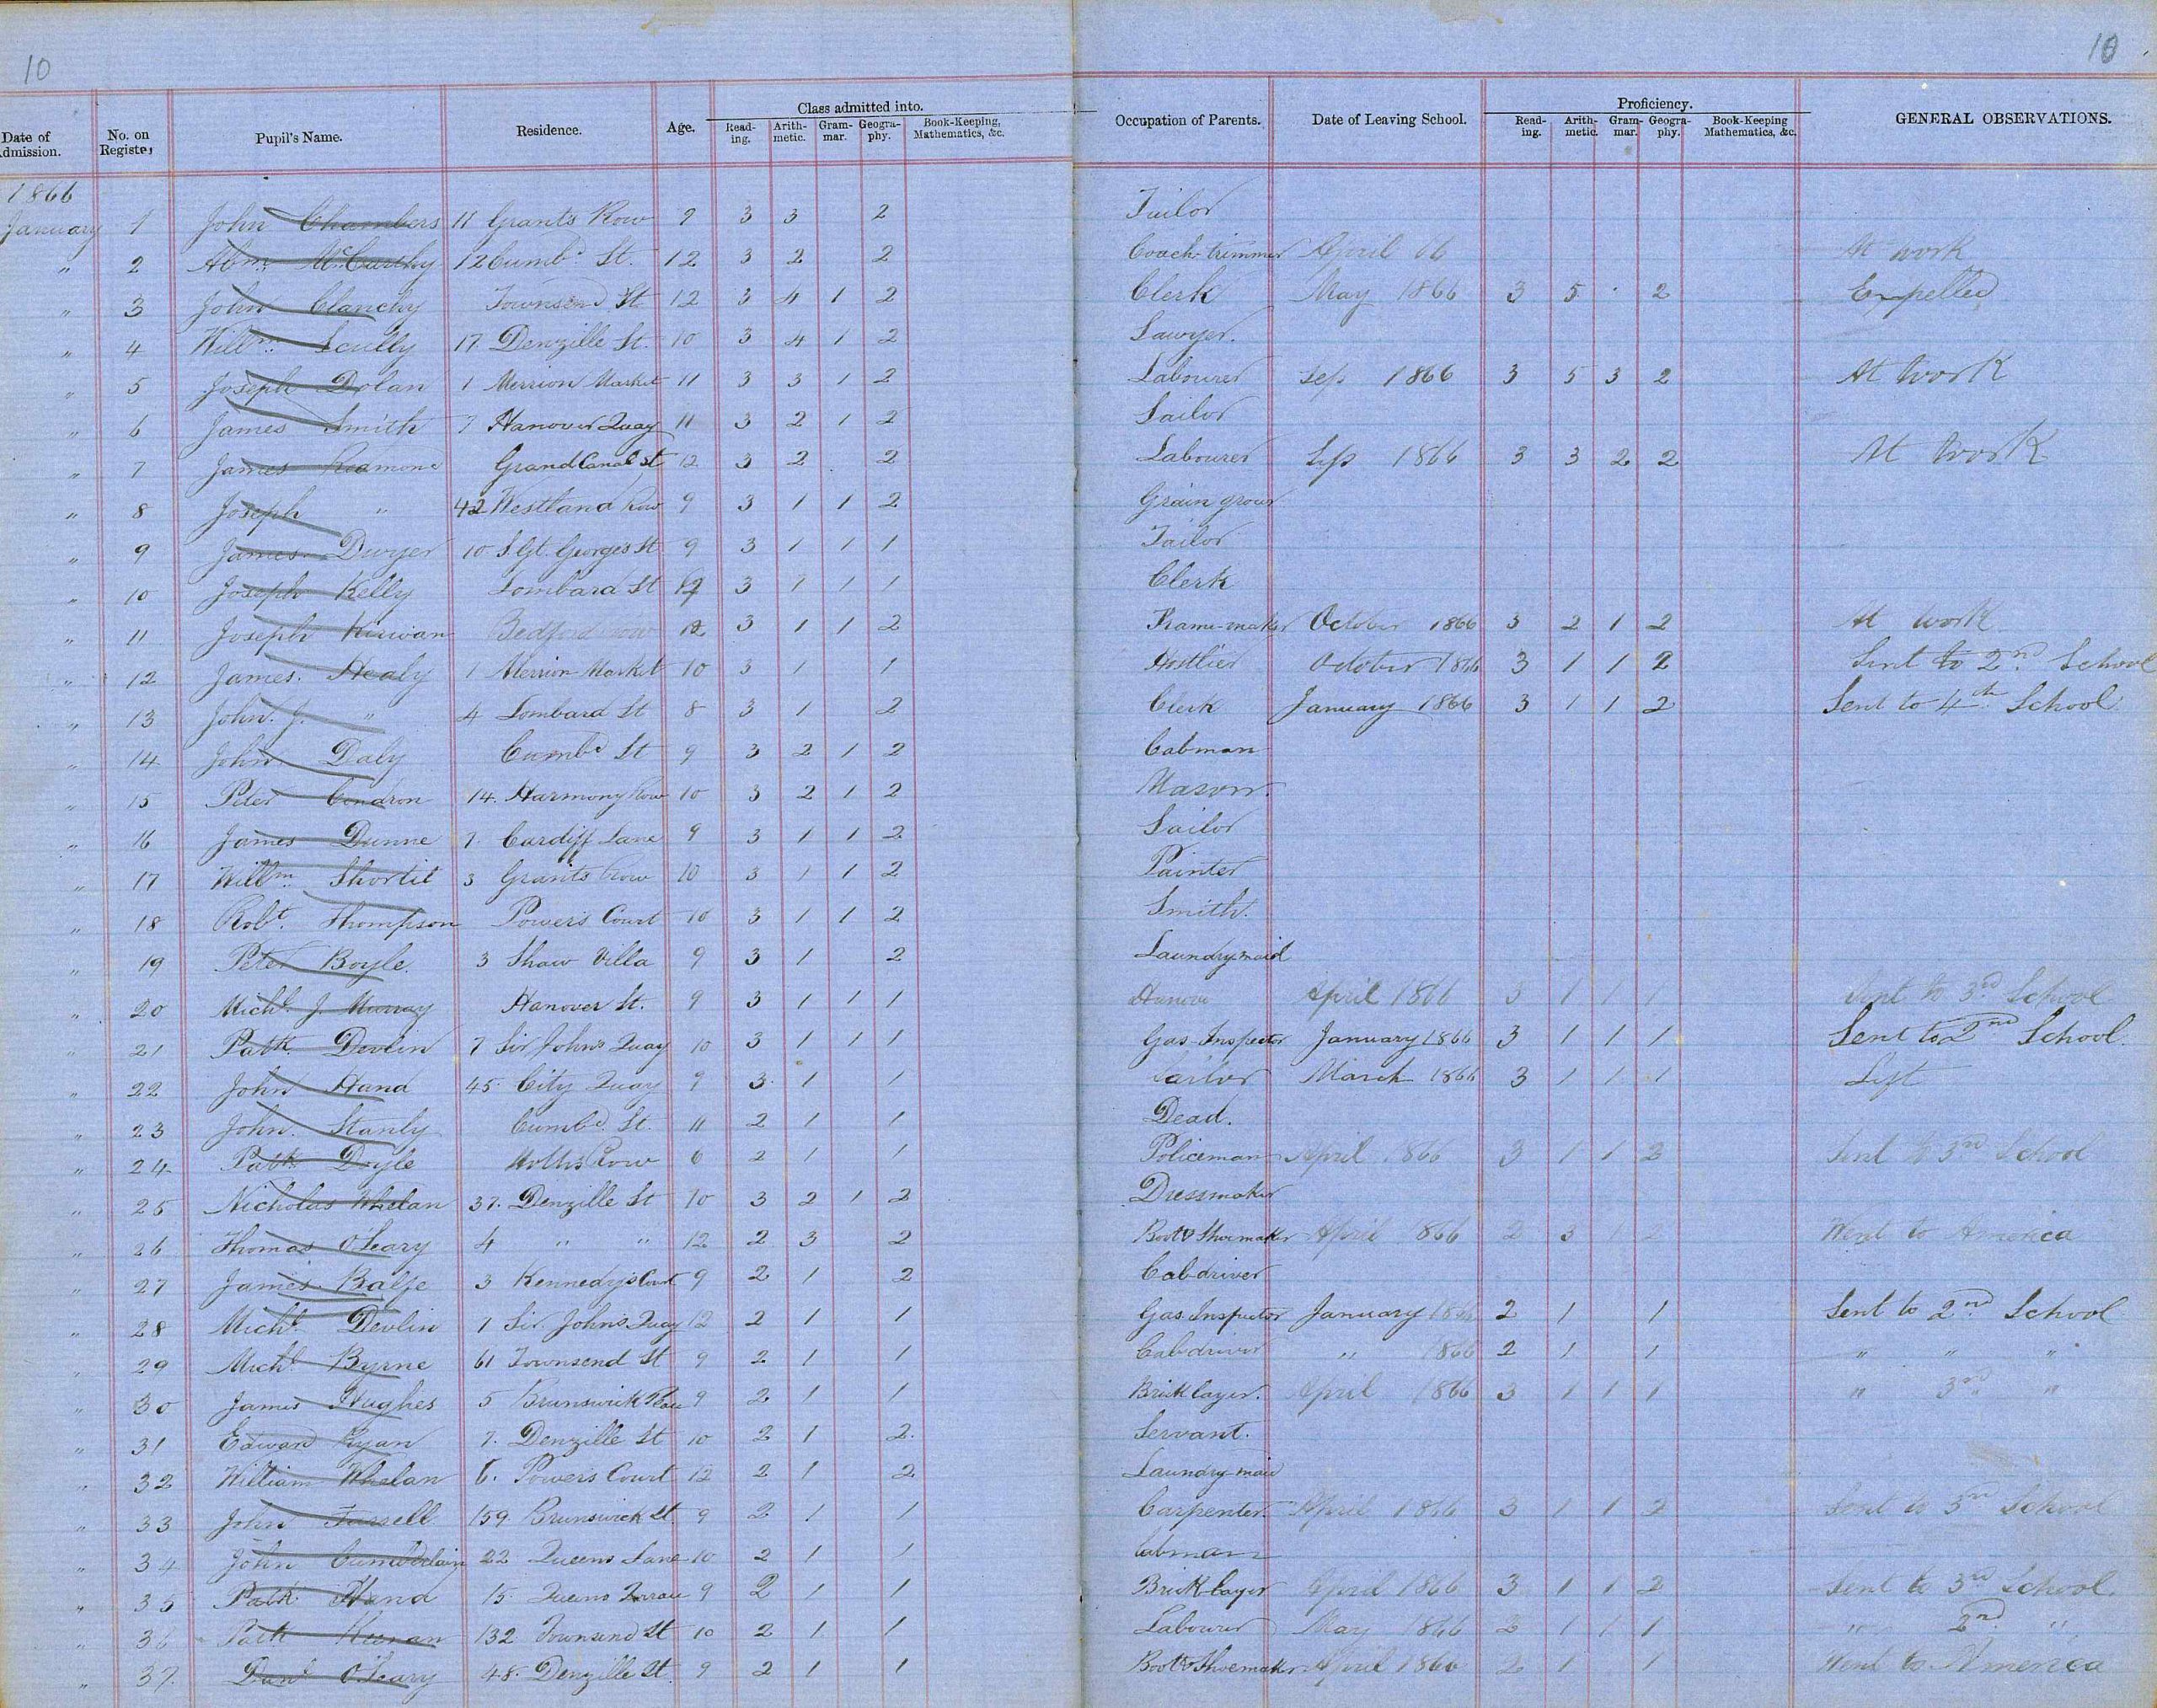 10
10
Date of Admission. No. on Register Pupil's Name. Residence. Age. Class admitted into. Reading. Arithmetic. Grammar. Geography. Book-Keeping, Mathematics, &c. Occupation of Parents. Date of Leaving School. Proficiency. Reading. Arithmetic. Grammar. Geography. Book-Keeping Mathematics, &c. GENERAL OBSERVATIONS.
1866
January 1 John Chambers 11 Grants Row 9 3 3 2 Tailor
" 2 Abm. McCarthy 12 Cumbd. St. 12 3 2 2 Coach-trimmer April 66 At work
" 3 John Clanchy Townsend St 12 3 4 1 2 Clerk May 1866 3 5 2 Expelled
" 4 Willm. Scully 17. Denzille St. 10 3 4 1 2 Sawyer.
" 5 Joseph Dolan 1 Merrion Market 11 3 3 1 2 Labourer Sep 1866 3 5 3 2 At work
" 6 James Smith 7 Hanover Quay 11 3 2 1 2 Sailor
" 7 James Redmond Grand Canal St 12 3 2 2 Labourer Sep 1866 3 3 2 2 At work
" 8 Joseph " 42 Westland Row 9 3 1 1 2 Grain grour
" 9 James Dwyer 10 S. Gt. George's St 9 3 1 1 1 Tailor
" 10 Joseph Kelly Lombard St 3 1 1 1 Clerk
" 11 Joseph Kirwan Bedford row 12 3 1 1 2 Frame-maker October 1866 3 2 1 2 At work
" 12 James. Healy 1 Merrion Market 10 3 1 1 Hostlier October 1866 3 1 1 2 Sent to 2nd. School
" 13 John. J. " 4 Lombard St 8 3 1 2 Clerk January 1866 3 1 1 2 Sent to 4th School
" 14 John Daly Cumbd St 9 3 2 1 2 Cabman
" 15 Peter Condron 14. Harmony Row 10 3 2 1 2 Mason.
" 16 James Dunne 7. Cardiff Lane 9 3 1 1 2 Sailor
" 17 Willm. Shortit 3 Grants row 10 3 1 1 2 Painter
" 18 Robt. Thompson Power's Court 10 3 1 1 2 Smith.
" 19 Peter Boyle. 3 Shaw Villa 9 3 1 2 Laundry maid
" 20 Michl. J Murray Hanover St. 9 3 1 1 1 April 1866 3 1 1 1 Sent to 3rd. School
" 21 Patk. Devlin 7 Sir John's Quay 10 3 1 1 1 Gas-Inspector January 1866 3 1 1 1 Sent to 2nd School.
" 22 John Hand 45. City Quay 9 3. 1 1 Sailor March 1866 3 1 1 1 Left
" 23 John. Stanly Cumbd. St. 11 2 1 1 Dead.
" 24 Patk. Doyle Row 6 2 1 1 Policeman April 1866 3 1 1 2 Sent to 3rd School
" 25 Nicholas Whelan 37. Denzille St 10 3 2 1 2 Dressmaker
" 26 Thomas O'Leary 4 " " 12 2 3 2 Boot & Shoemaker April 1866 2 3 2 Went to America
" 27 James Balfe 3 Kennedy's Court 9 2 1 2 Cab driver
" 28 Michl. Devlin 1 Sir John's Quay 12 2 1 1 Gas Inspector January 1866 2 1 1 Sent to 2nd School
" 29 Michl. Byrne 61 Townsend St 9 2 1 1 Cab driver " 1866 2 1 1 " " "
" 30 James Hughes 5 Brunswick Place 9 2 1 1 Brick layer. April 1866 3 1 1 1 " 3rd "
" 31 Edward Ryan 7. Denzille St 10 2 1 2. Servant.
" 32 William Whelan 6. Power's Court 12 2 1 2 Laundry maid
" 33 John Farrell 159 Brunswick St. 9 2 1 1 Carpenter. April 1866 3 1 1 2 Sent to 3rd School
" 34 John 22 Queens Lane 10 2 1 1 Cabman
" 35 Patk Hand 15. Queens Terrace 9 2 1 1 Brick-layer April 1866 3 1 1 2 Sent to 3rd School.
" 36 Patk Keenan 132 Townsend St 10 2 1 1 Labourer May 1866 2 1 1 1 " 2nd. "
" 37. Danl O'Leary 48. Denzille St. 9 2 1 1 Boot & Shoemaker April 1866 2 1 1 Went to America